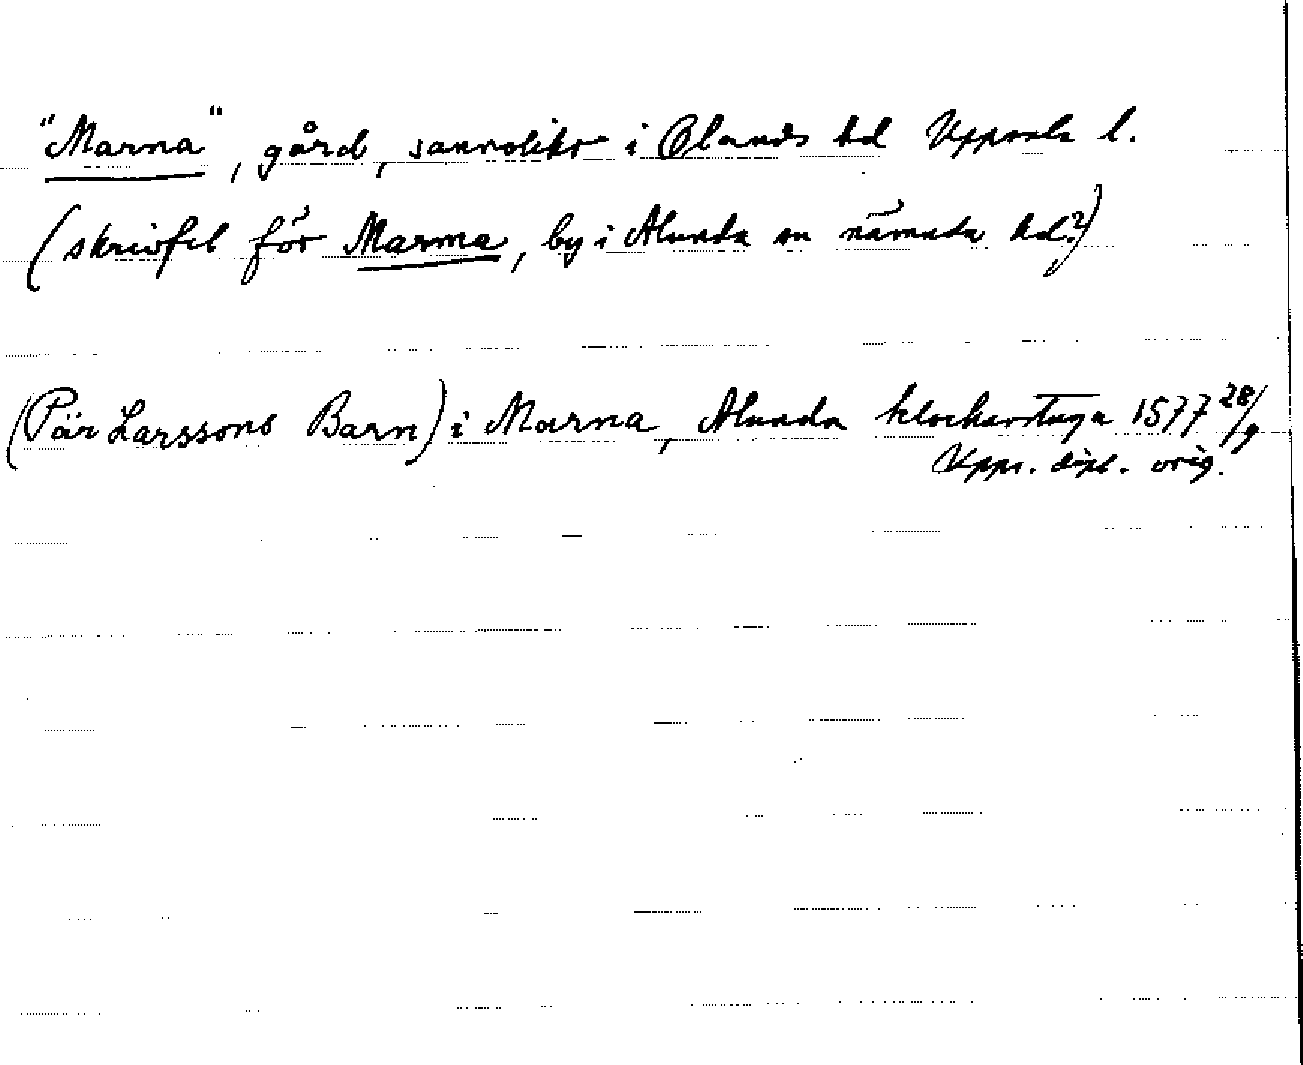 "Marna", gård, sannolikt i Olands hd Uppsala l.
(skrivfel för Marma, by i Alunda sn nämnda hd?)
(Pär Larssons Barn) i Marna, Alunda klockarstuga 1577 28/9
Upps. dipl. orig.